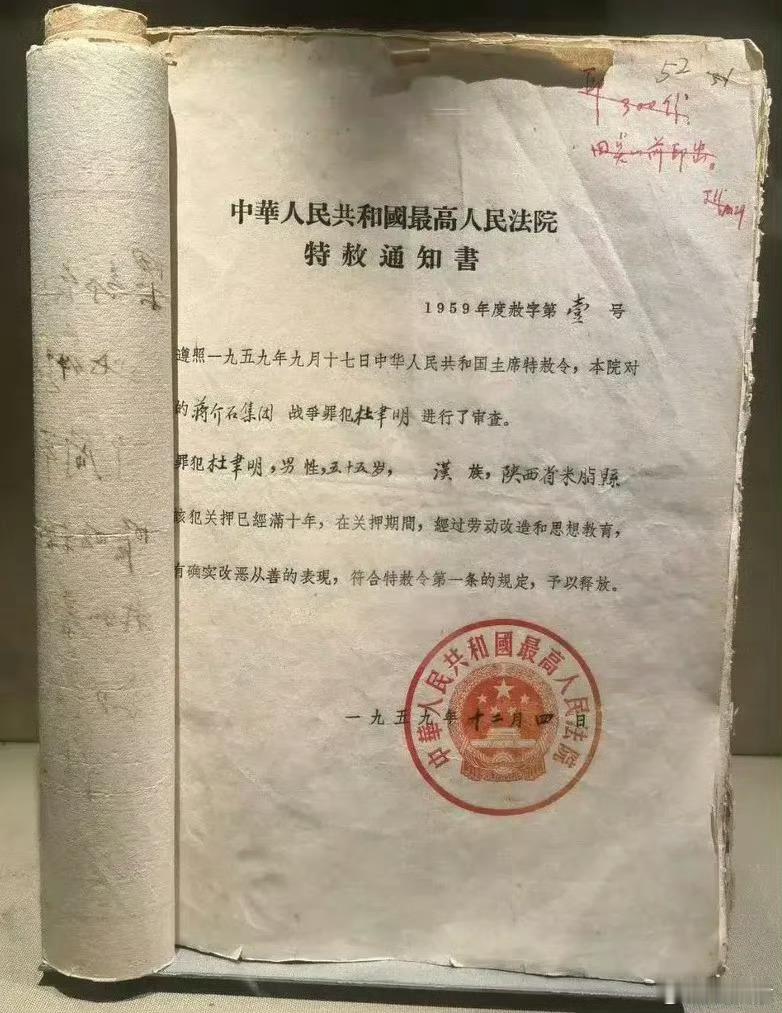 52
中華人民共和國最高人民法院
特赦通知書
1959年度赦字第壹号
遵照一九五九年九月十七日中华人民共和国主席特赦令，本院对
的蒋介石集团 战争罪犯杜聿明 进行了审查。
罪犯杜聿明，男性，五十五岁， 漢族，陕西省米脂縣
该犯关押已經滿十年，在关押期間，經过劳动改造和思想教育，
有确实改恶从善的表現，符合特赦令第一条的規定，予以释放。
中華人民共和國最高人民法院
一九五九年十二月四日